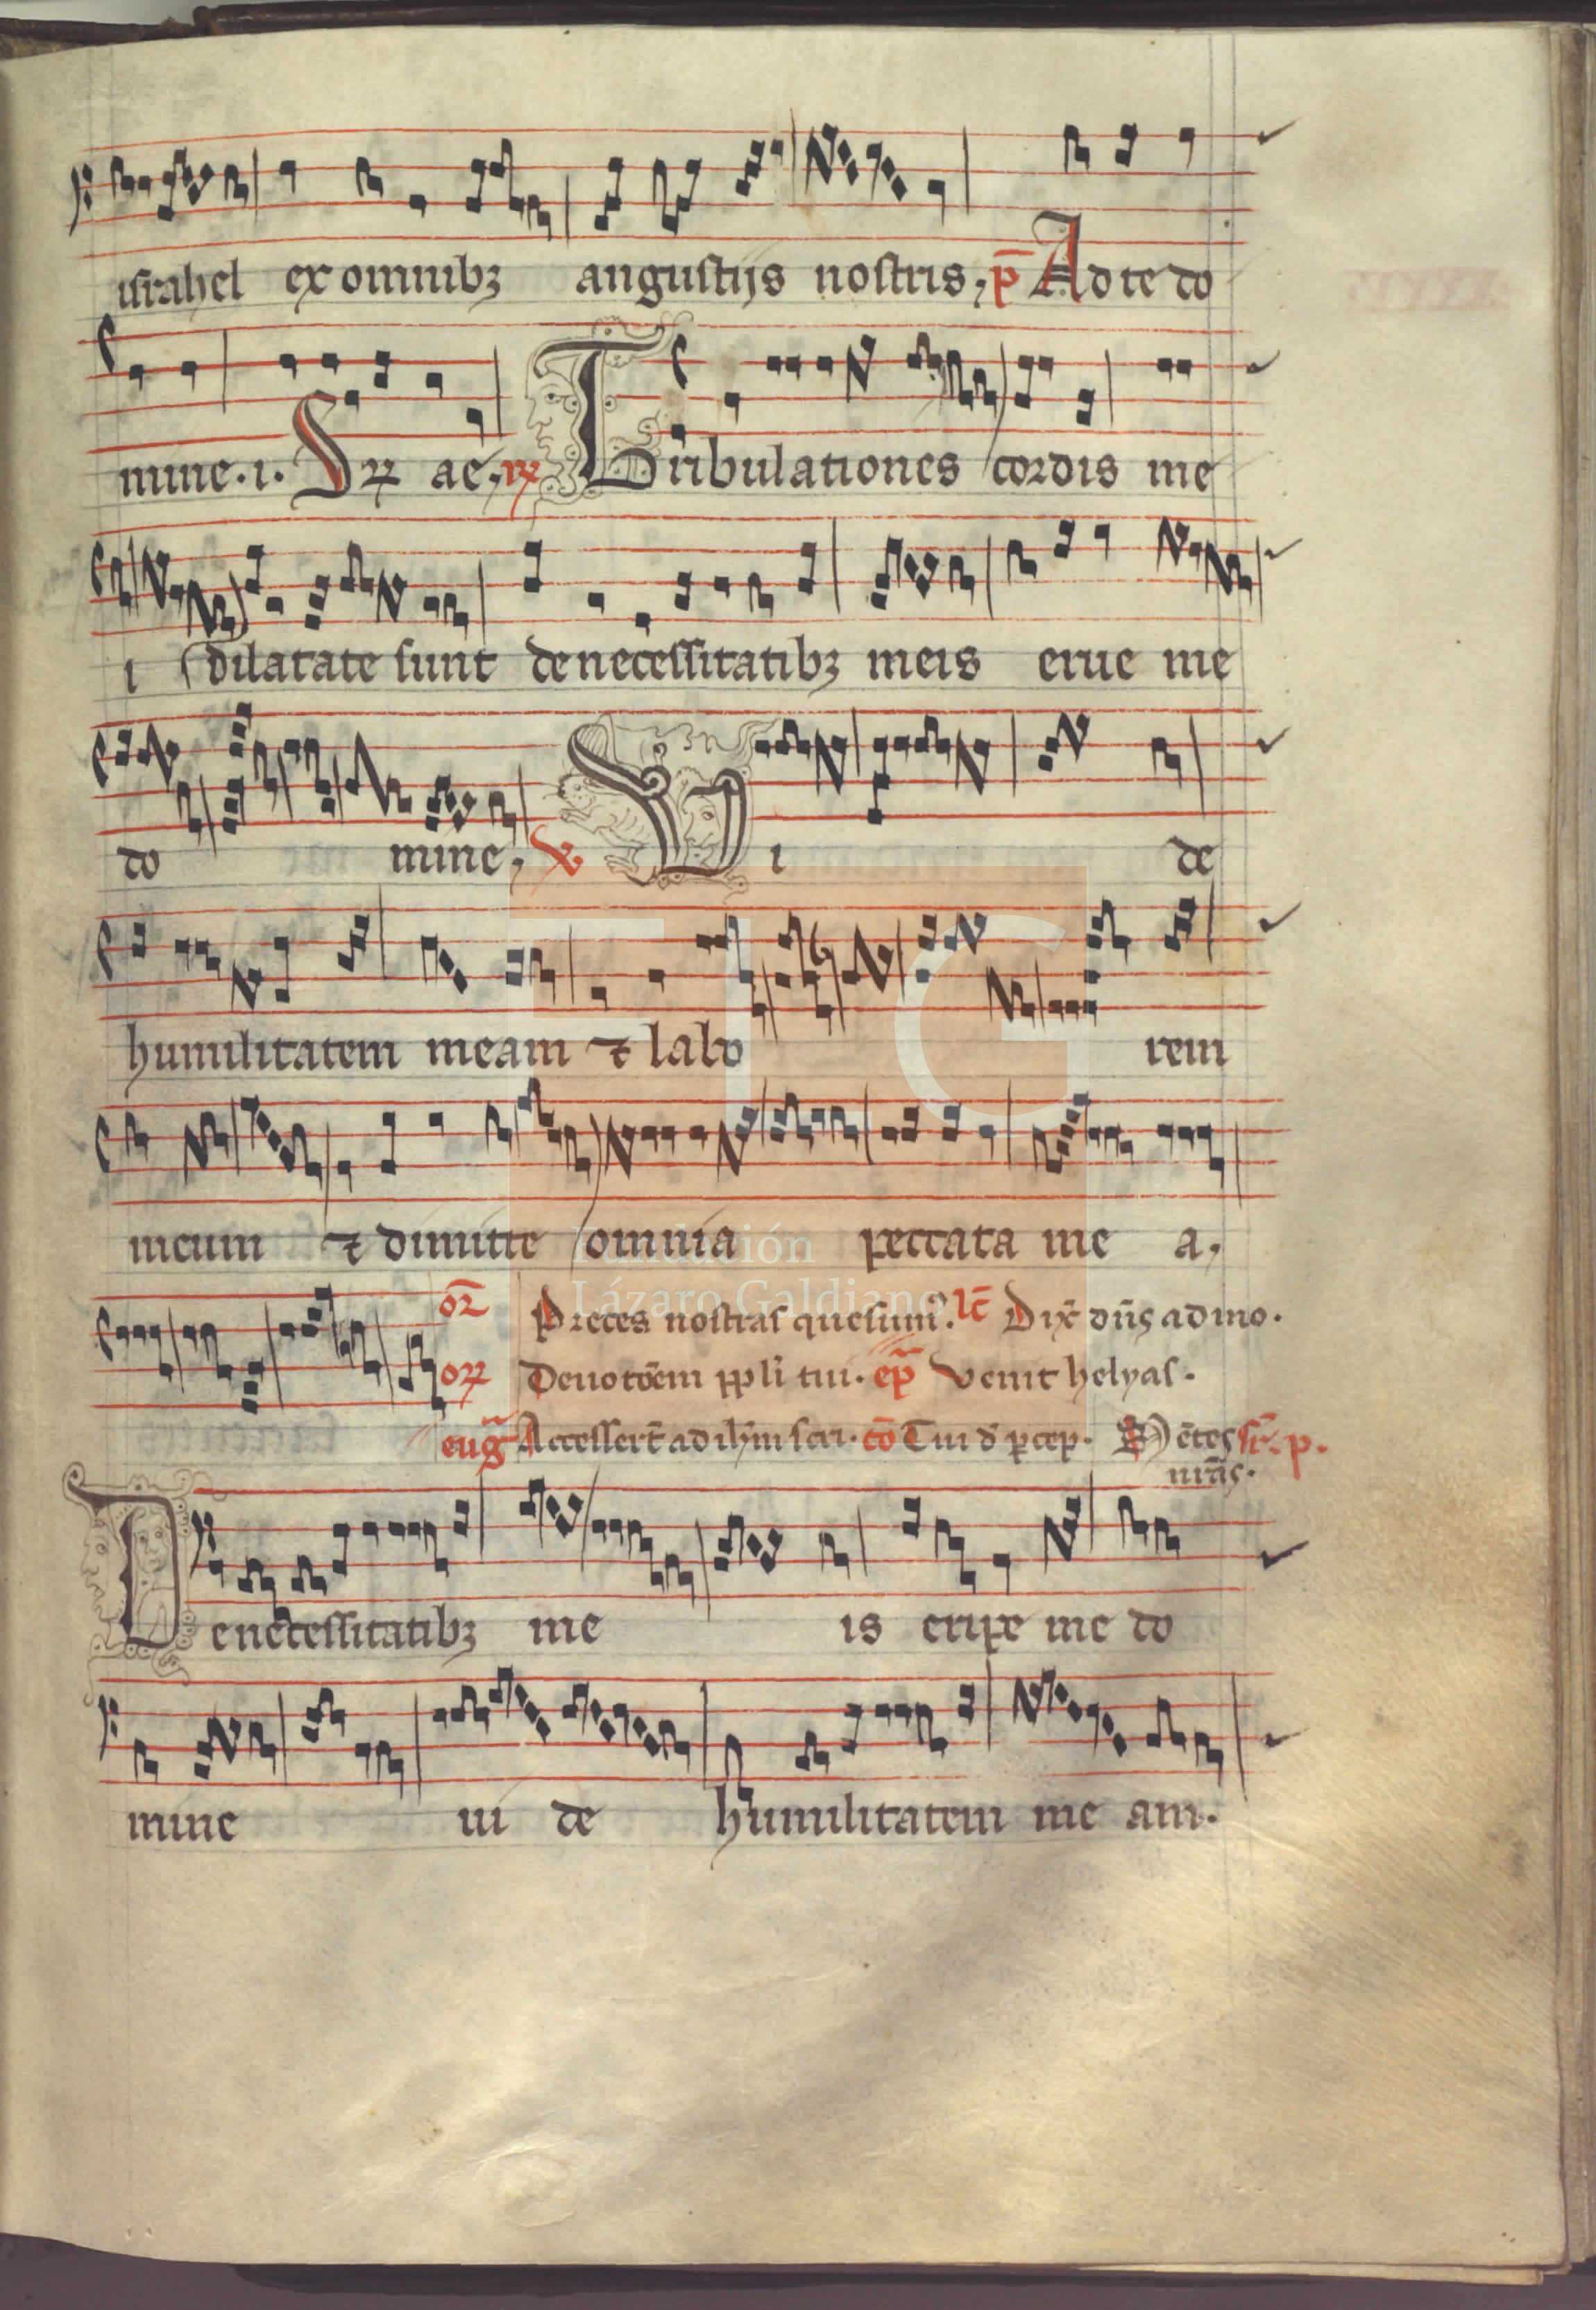 israhel ex omnibꝫ angustijs nostris, p̄ Ad te do
mine .i. Dꝝ ae, ꝶ Tribulationes cordis me
i dilatate sunt de necessitatibꝫ meis erue me
do mine, ℣ Vi de
humilitatem meam ⁊ labo rem
meum ⁊ dimitte omnia peccata me a,
or̄ Preces nostras quesum̉. lc̄ Dix̄ dn̄s ad mo.
Deuotōem ppl̄i tui. ep̄ Venit helyas.
euḡ Accessert̄ ad ih̄m scri. cō Tui d̄ p̄cep. M̄etes sr̄. p.
nr̄as.
De necessitatibꝫ me is eripe me do
mine ui de humilitatem me am.
Fundación
Lázaro Galdiano